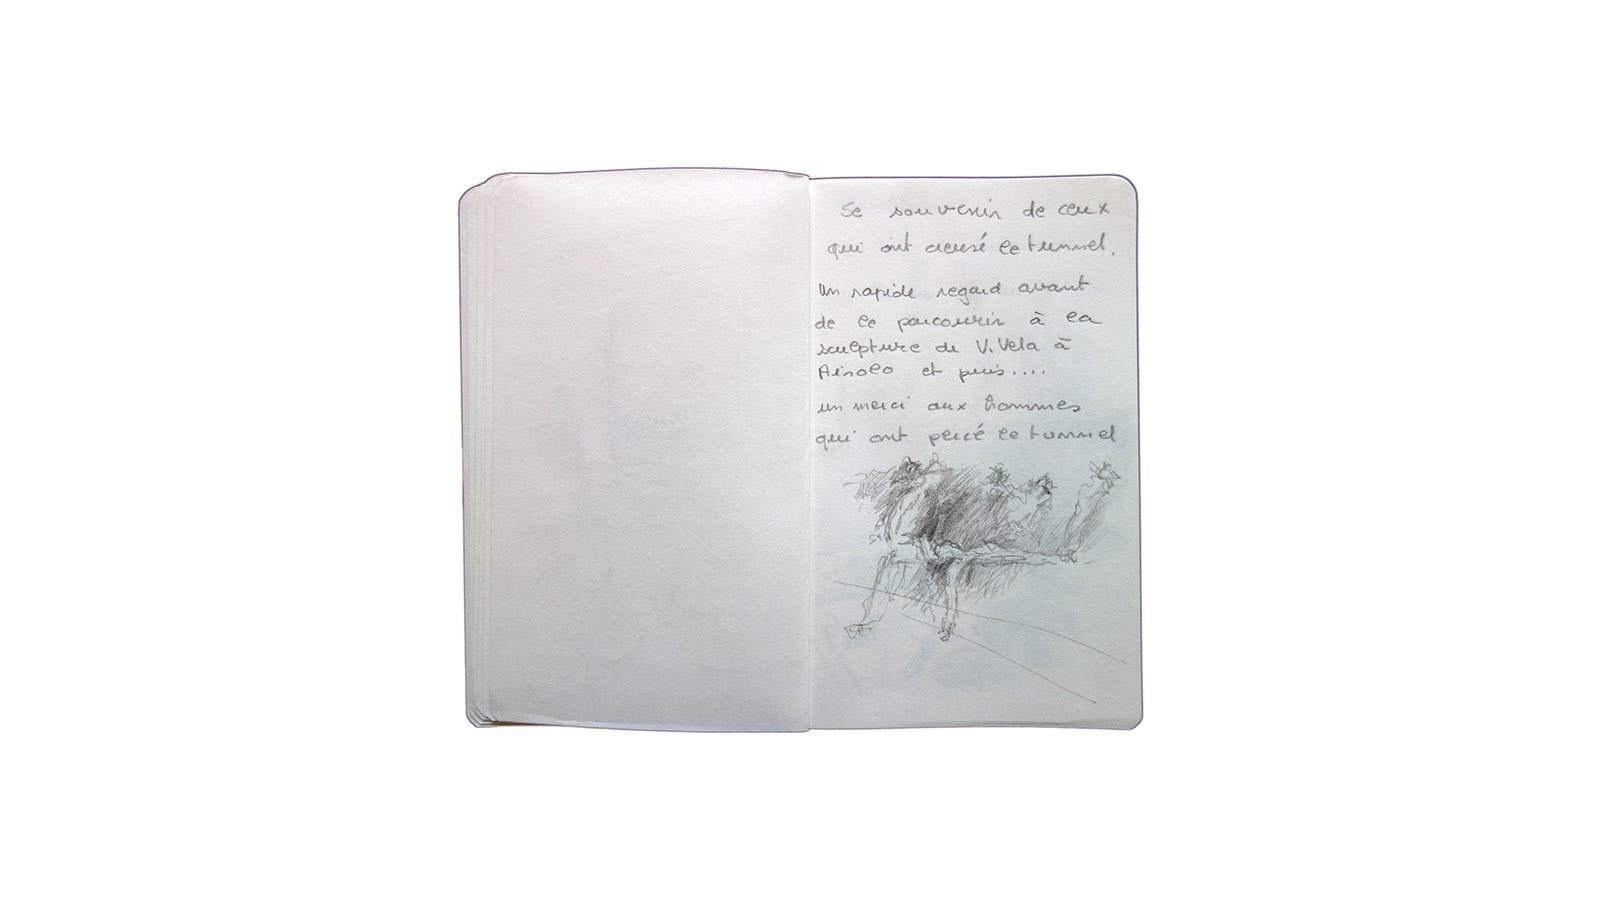 Se souvenir de ceux
qui ont creusé le tunnel.
Un rapide regard avant
de le parcourir à la
sculpture de V. Vela à
Airolo et puis....
un merci aux hommes
qui ont percé le tunnel